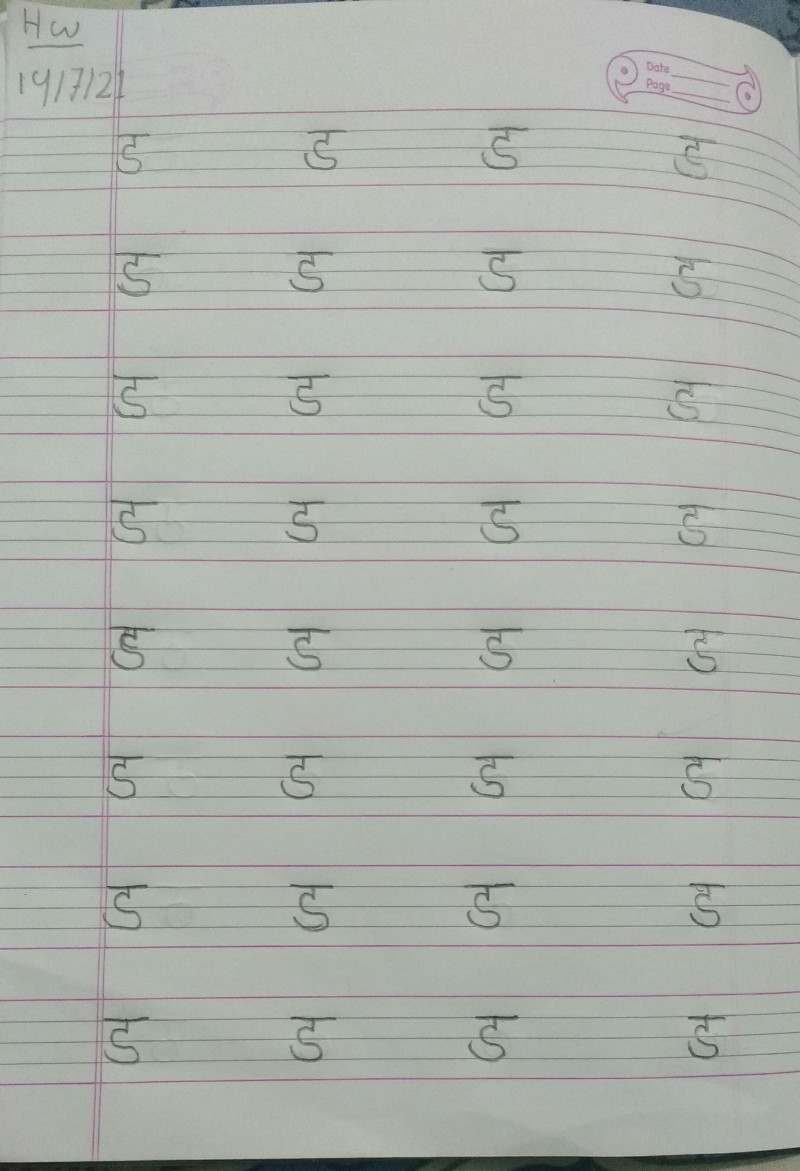 HW
14/7/21
Date
Page
ड ड ड ड
ड ड ड ड
ड ड ड ड
ड ड ड ड
ड ड ड ड
ड ड ड ड
ड ड ड ड
ड ड ड ड